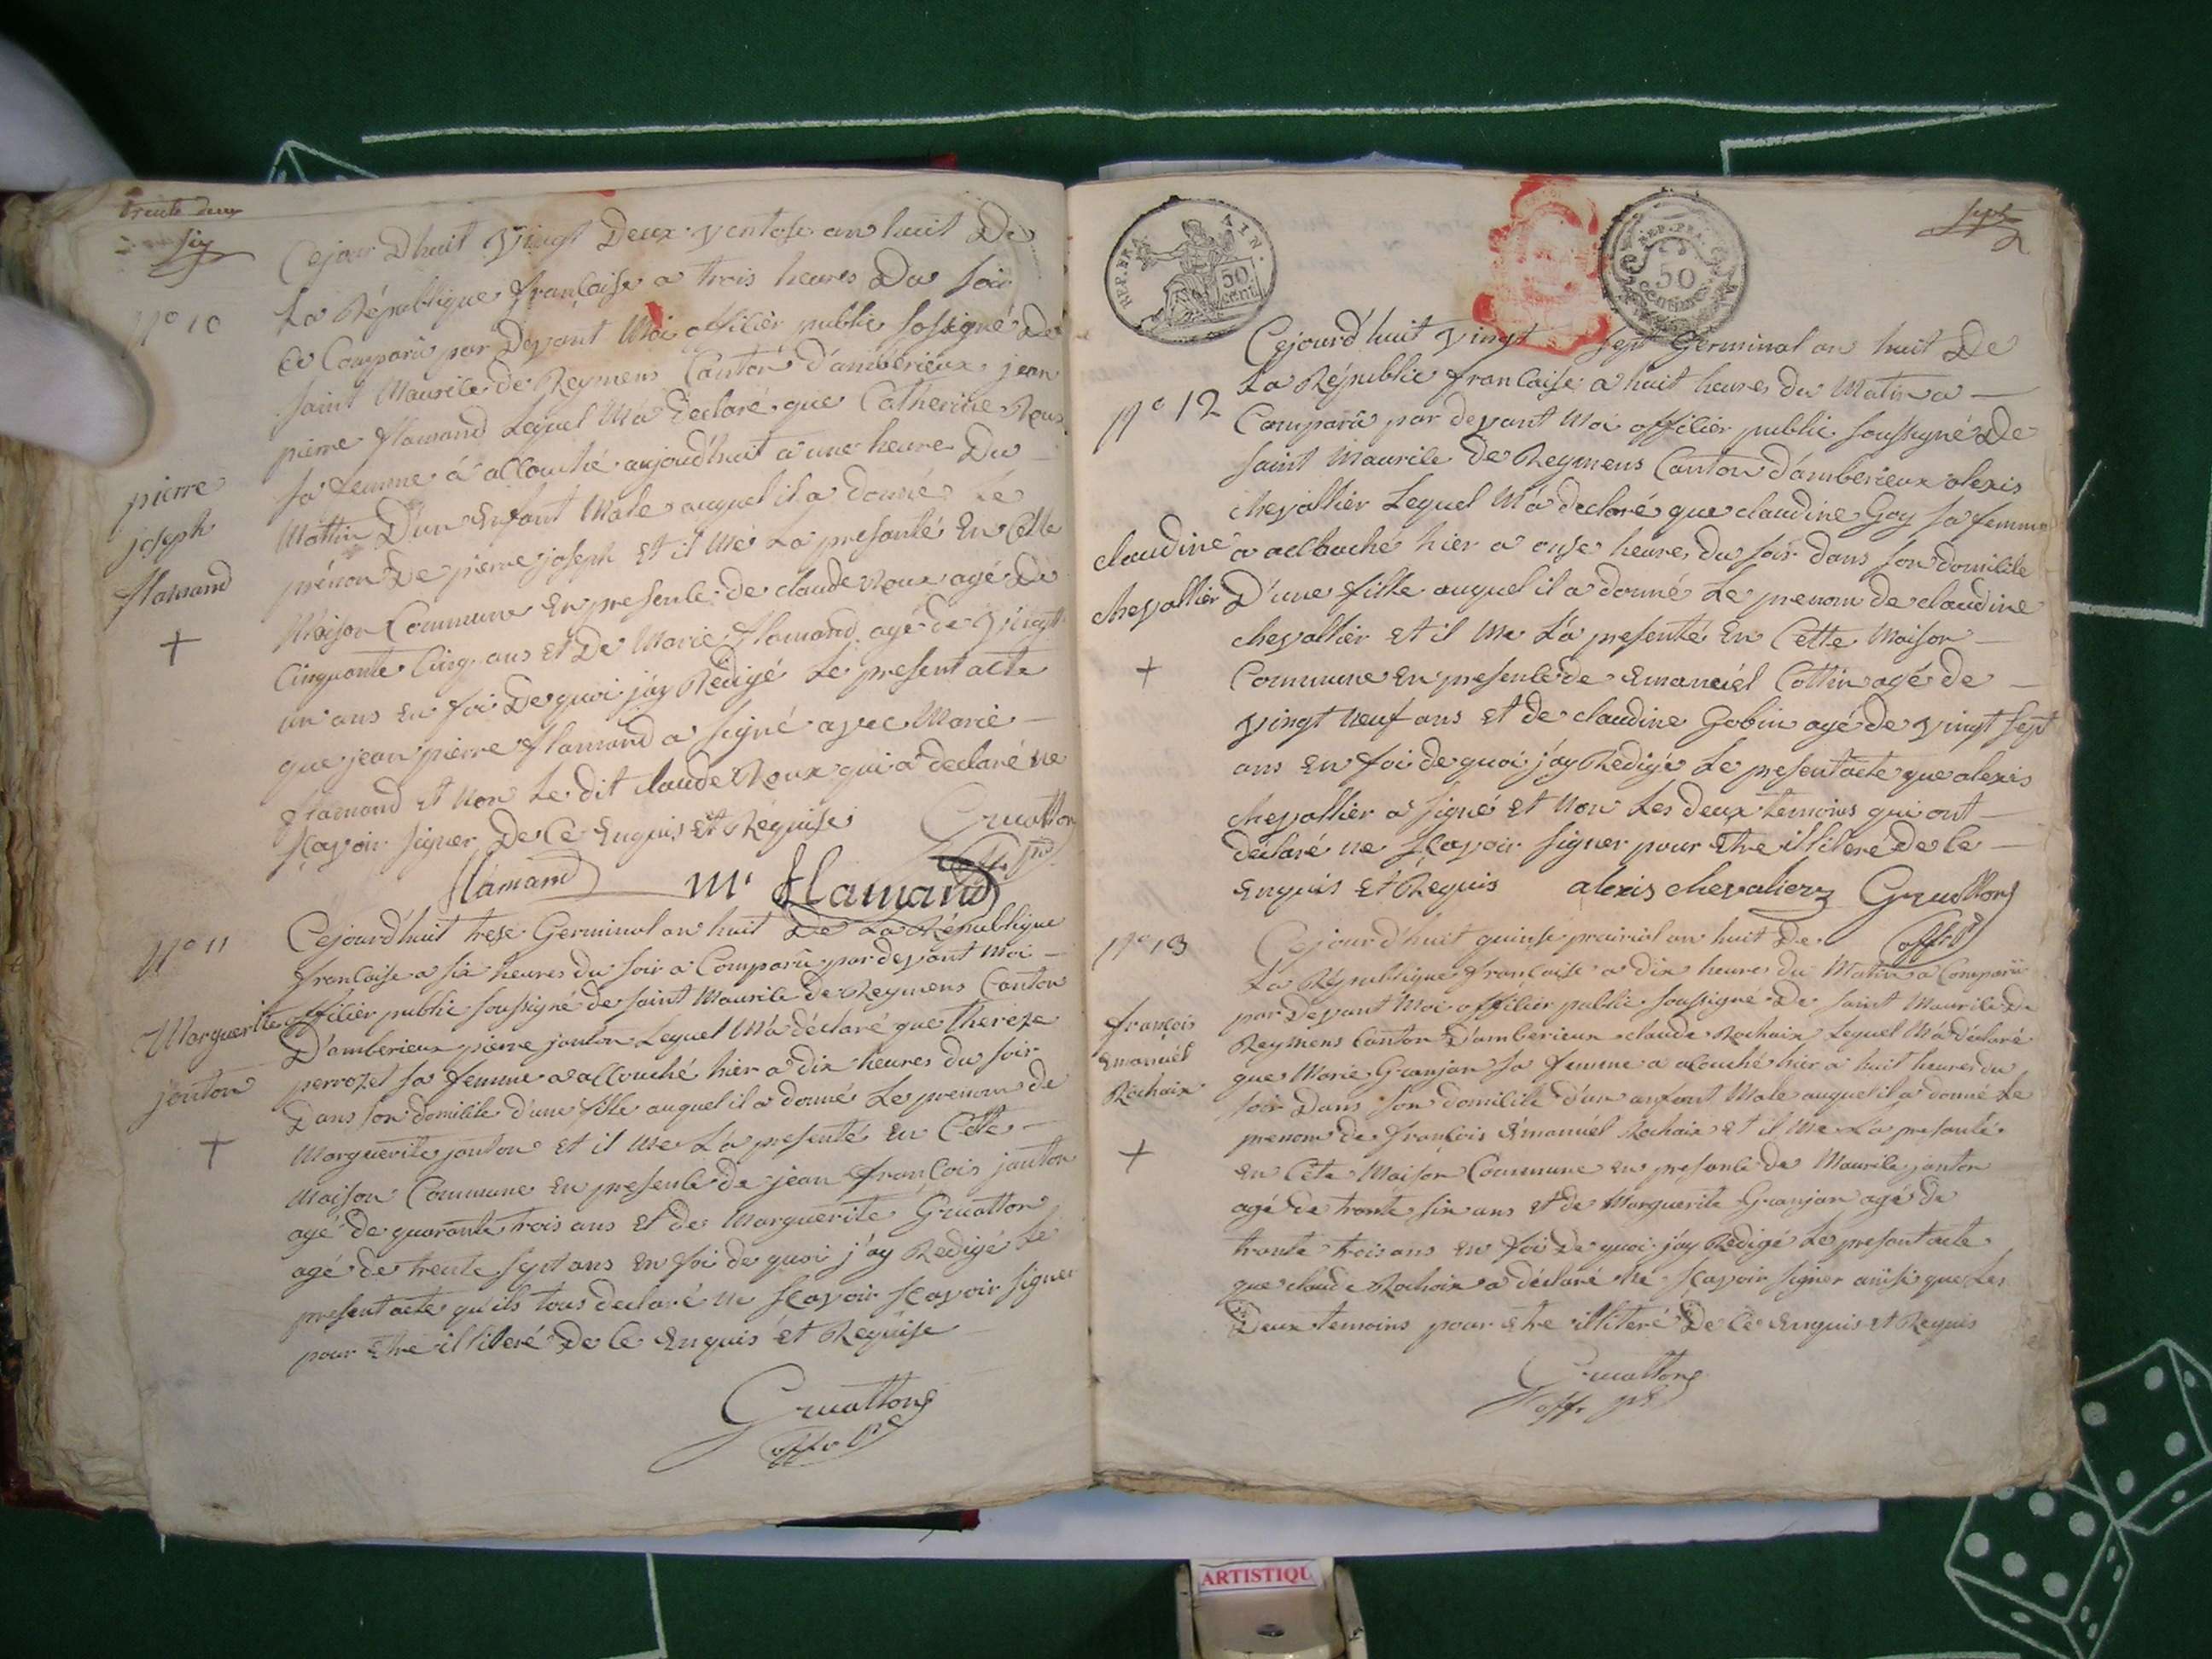 trente deux
six
N° 10
pierre
joseph
flamand
+
Cejour Dhuit vingt Deux ventose an huit De
La République françoise a trois heures Du soir
Est Comparu par Devant Moi officier public sossigné De
saint Maurice de Reymens Canton d'amberieux jean
pierre flamand Lequel M'a declaré que Catherine Roux
sa femme á accouché aujourdhuit á une heure Du
Mattin D'un Enfant Male auquel il a donné Le
prénom De pierre joseph Et il Me La presanté En Cette
Maison Commune En presence de claude Roux agé De
Cinquante Cinq ans Et De Marie flamand agé de vingt
un ans En foi De quoi j'ay Redigé Le present acte
que jean pierre flamand a signé avec Marie
flamand Et Non Le dit claude Roux qui a declaré ne
sçavoir signer De Ce Enquis Et Requise
Gruatton
flamand
mr flamand
N° 11
Marguerite
jonton
+
Cejourd'huit trese Germinal an huit De La République
francaise a six heures du soir a Comparu par devant Moi
officier public soussigné de saint Maurice de Reymens Canton
D'amberieux pierre jonton Lequel M'a déclaré que thereze
perrozet sa femme a accouché hier a dix heures du soir
Dans son domicile d'une fille auquel il a donné Le prenom de
Marguerite jonton Et il Me La presenté En Cette
Maison Commune En presence de jean françois jonton
agé de quarante trois ans Et de Marguerite Gruatton
agé de trente sept ans En foi de quoi j'ay Redigé Le
present acte qu'ils tous declaré ne sçavoir sçavoir signer
pour Etre illiteré De Ce Enquis Et Requise
Gruatton
off. p.
sept
REP. FRA.
AIN.
50 cent.
REP. FRA.
50
centimes
N° 12
claudine
chevallier
+
Cejourd'huit vingt sept Germinal an huit De
La Républic francaise a huit heures du Matin a
Comparu par devant Moi officier public soussigné De
saint Maurice De Reymens Canton d'amberieux alexis
chevallier Lequel M'a declaré que claudine Goy sa femme
a accouché hier a onse heures du soir dans son domicile
D'une fille auquel il a donné Le prenom de claudine
chevallier Et il Me L'a presenté En Cette Maison
Commune En presence de Emanuél Cottin agé de
vingt Neuf ans Et de claudine Gobin agé de vingt sept
ans En foi de quoi j'ay Redigé Le present acte que alexis
chevallier a signé Et Non Les deux temoins qui ont
declaré ne sçavoir signer pour Etre illiteré de Ce
Enquis Et Requis alexis chevalier Gruatton
off. p.
N° 13
françois
Emanuél
Rochaix
+
Cejour d'huit quinse prairial an huit De
La République française a dix heures du Matin a Comparu
par Devant Moi officier public soussigné De saint Maurice De
Reymens Canton D'amberieux claude Rochaix Lequel M'a déclaré
que Marie Granjan sa femme a acouché hier a huit heures du
soir Dans son domicile d'un anfant Male auquel il a donné Le
prenom de françois Emanuél Rochaix Et il Me La presanté
En Cete Maison Commune En presance de Maurice jonton
agé de trante six ans Et de Marguerite Granjan agé de
trante trois ans En foi De quoi j'ay Redigé Le presant acte
que claude Rochaix a déclaré Ne sçavoir signer ainsi que Les
Deux temoins pour Etre illiteré De Ce Enquis Et Requis
Gruatton
off. p.
ARTISTIQU